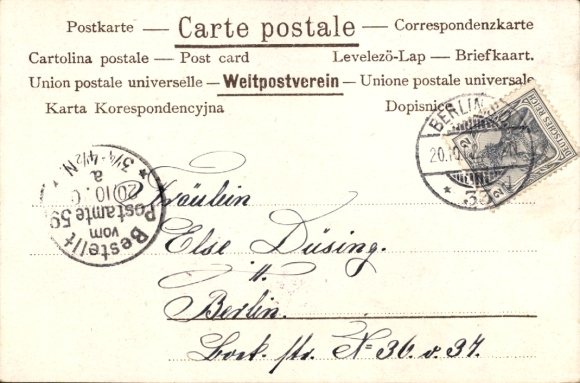 Postkarte — Carte postale — Correspondenzkarte
Cartolina postale — Post card Levelezö-Lap — Briefkaart.
Union postale universelle — Weltpostverein — Unione postale universale
Karta Korespondencyjna Dopisnice
BERLIN
20.10.
DEUTSCHES REICH
2
2
Bestellt
vom
Postamte 59
20/10.
a
* 3¼-4½ N.
Fräulein
Else Düsing.
Berlin.
Bock str. No 36. v. 37.